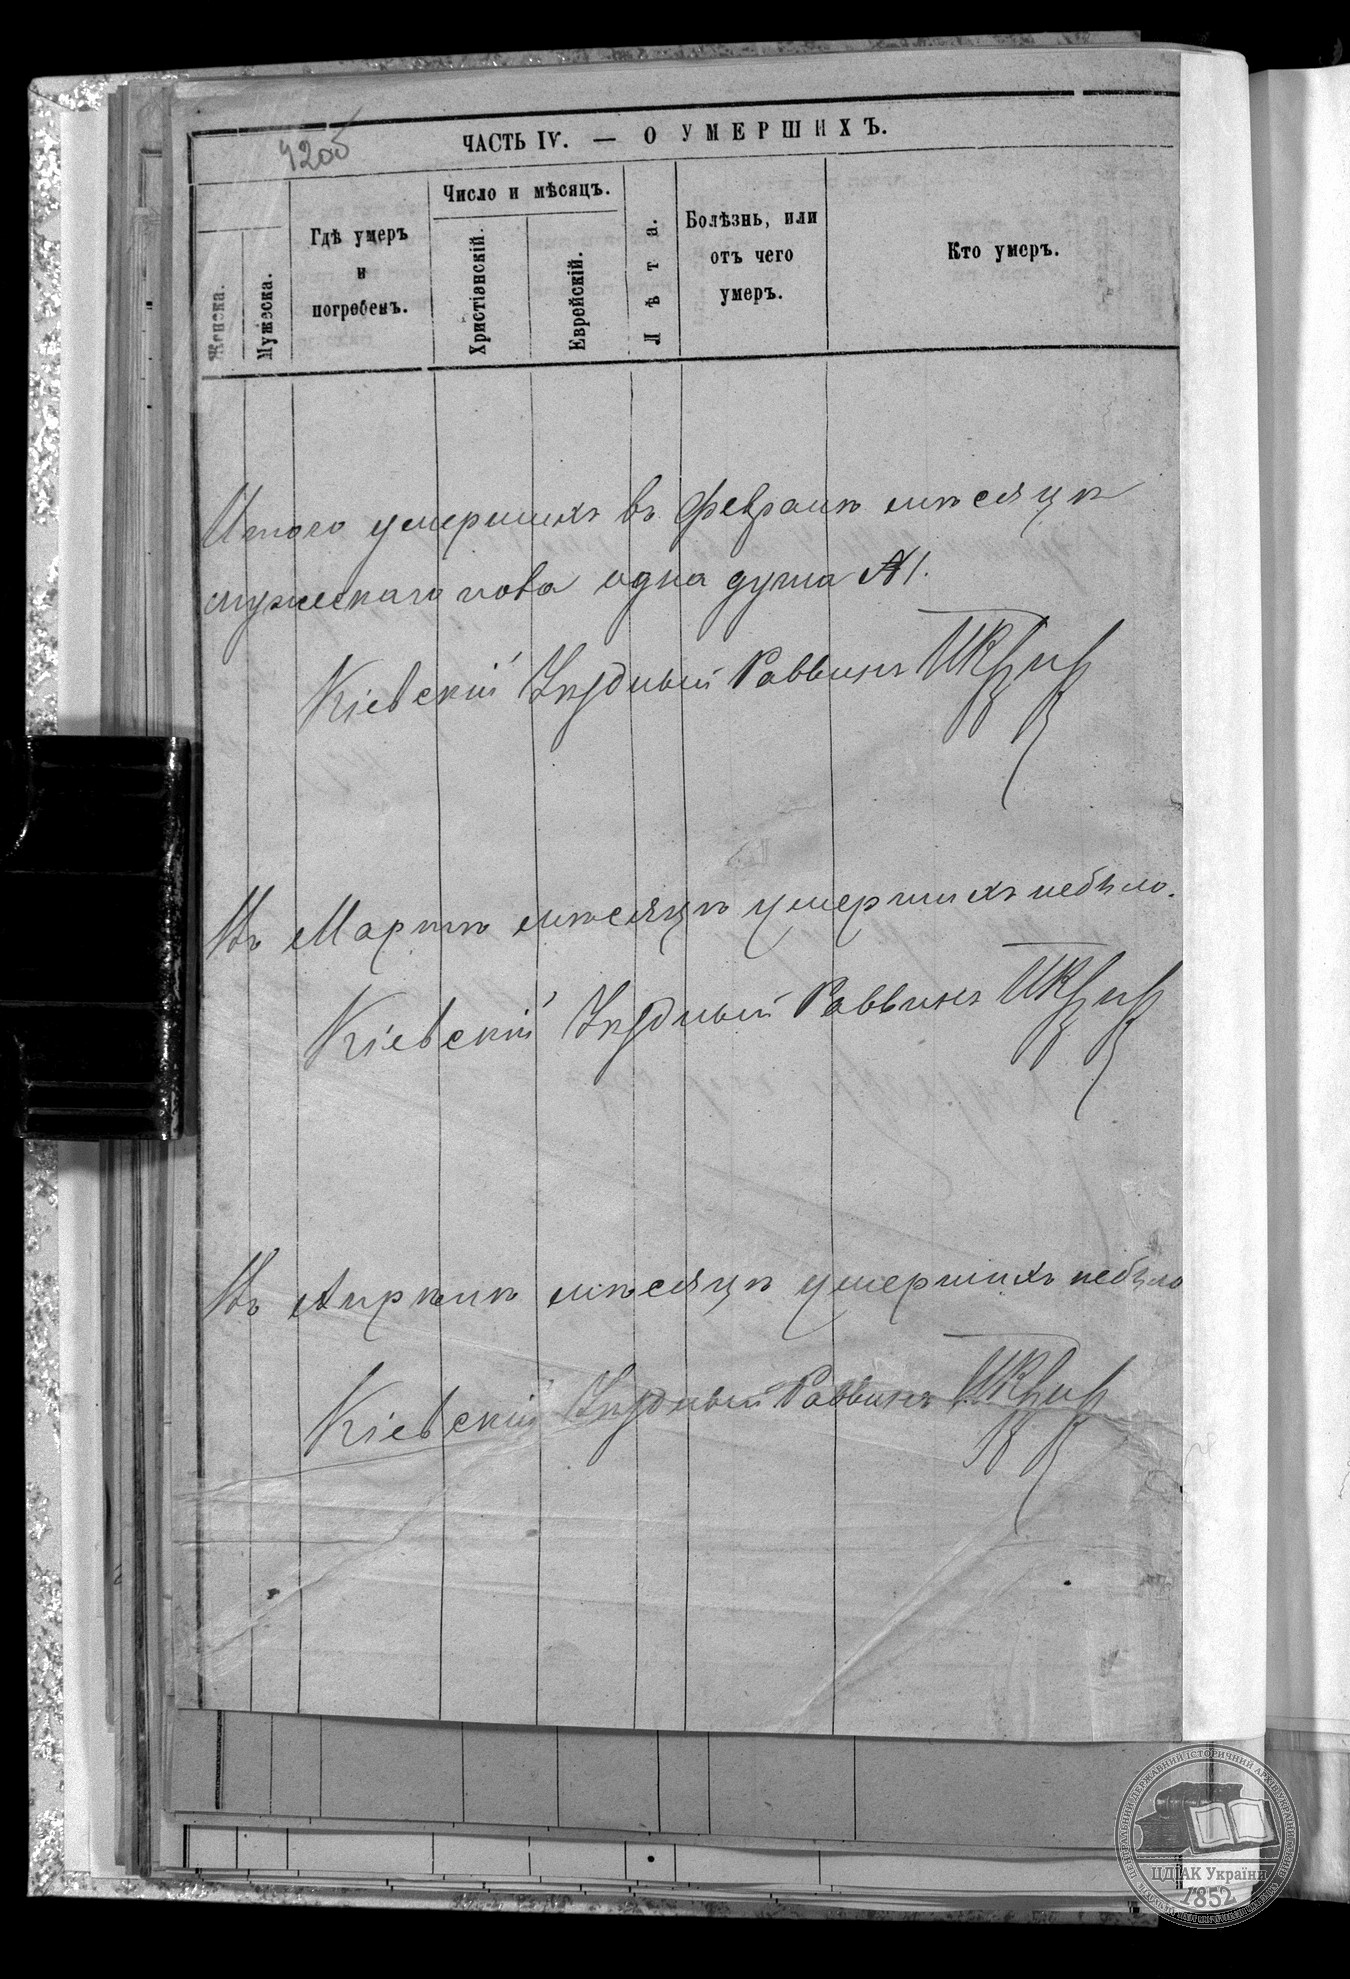 42об
ЧАСТЬ IV. — О УМЕРШИХЪ.
Женска.
Мужеска.
Гдѣ умеръ
и
погребенъ.
Число и мѣсяцъ.
Христіянскій.
Еврейскій.
Лѣта.
Болѣзнь, или
отъ чего
умеръ.
Кто умеръ.
Итого умершихъ въ Февралѣ мѣсяцѣ
мужескаго пола одна душа № 1.
Кіевскій Уѣздный Раввинъ
Въ Мартѣ мѣсяцѣ умершихъ небыло.
Кіевскій Уѣздный Раввинъ
Въ Апрѣлѣ мѣсяцѣ умершихъ небыло
Кіевскій Уѣздный Раввинъ
ЦДІАК України
1852